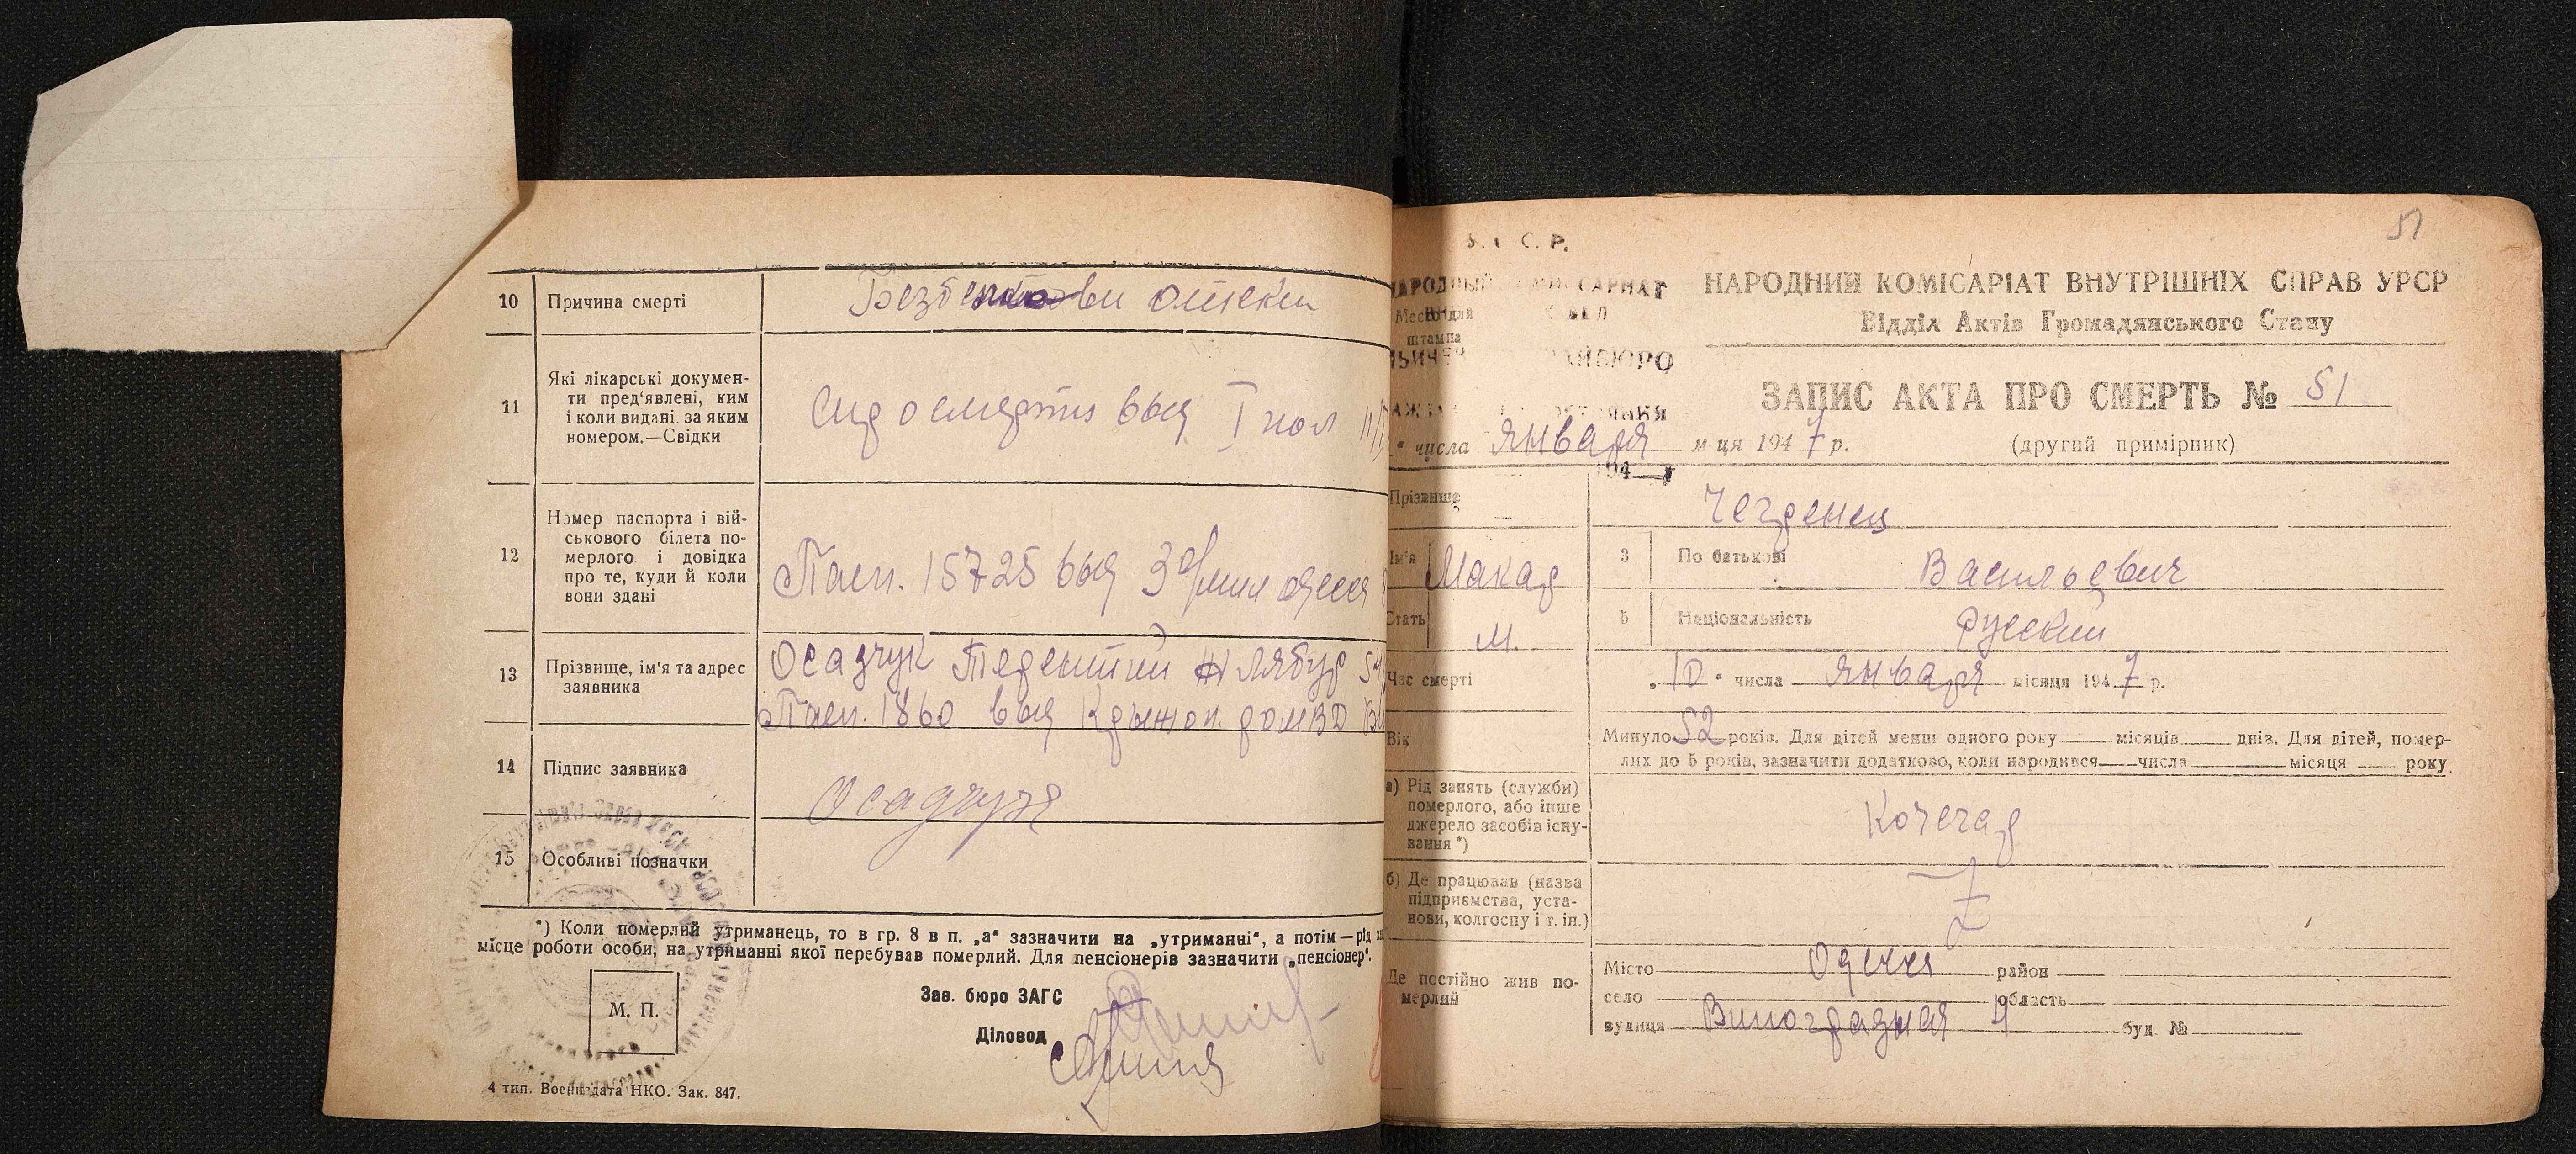 10 Причина смерті отеки
11 Які лікарські докумен-
ти пред'явлені, ким
і коли видані за яким
номером.—Свідки
12 Номер паспорта і вій-
ськового білета по-
мерлого і довідка
про те, куди й коли
вони здані
Пасп. 15725 выд 3 одесс
13 Прізвище, ім'я та адрес
заявника
Осадчук Терентий 54
Пасп. 1860 выд Крыжоп.
14 Підпис заявника
Осадчук
15 Особливі позначки
*) Коли померлий утриманець, то в гр. 8 в п. „а“ зазначити на „утриманні“, а потім — рід
місце роботи особи, на утриманні якої перебував померлий. Для пенсіонерів зазначити „пенсіонер“.
М. П.
Зав. бюро ЗАГС
Діловод
4 тип. Воениздата НКО. Зак. 847.
51
С. Р.
НАРОДНИЙ КОМІСАРІАТ ВНУТРІШНІХ СПРАВ УРСР
Відділ Актів Громадянського Стану
Место для
штампа
ЗАПИС АКТА ПРО СМЕРТЬ № 51
числа января м ця 1947 р. (другий примірник)
194
Прізвище
Ім'я Макар 3 По батькові Васильевич
Стать М. 5 Національність Русский
Час смерті „10“ числа января місяця 1947 р.
Вік Минуло 52 років. Для дітей менш одного року місяців днів. Для дітей, помер-
лих до 5 років, зазначити додатково, коли народився числа місяця року
а) Рід занять (служби)
померлого, або інше
джерело засобів існу-
вання *)
Кочегар
б) Де працював (назва
підприємства, уста-
нови, колгоспу і т. ін.)
Де постійно жив по-
мерлий
Місто Одесса район
село область
вулиця Виноградная 4 буд №